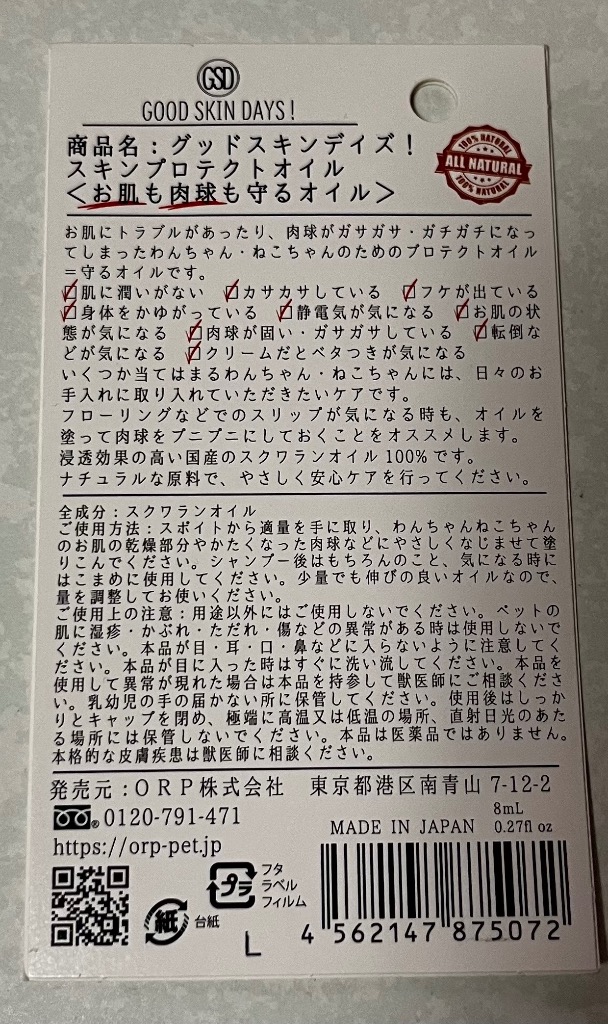 GSD
GOOD SKIN DAYS!
商品名：グッドスキンデイズ！
スキンプロテクトオイル
＜お肌も肉球も守るオイル＞
100% NATURAL
ALL NATURAL
100% NATURAL
お肌にトラブルがあったり、肉球がガサガサ・ガチガチになっ
てしまったわんちゃん・ねこちゃんのためのプロテクトオイル
＝守るオイルです。
☑肌に潤いがない ☑カサカサしている ☑フケが出ている
☑身体をかゆがっている ☑静電気が気になる ☑お肌の状
態が気になる ☑肉球が固い・ガサガサしている ☑転倒な
どが気になる ☑クリームだとベタつきが気になる
いくつか当てはまるわんちゃん・ねこちゃんには、日々のお
手入れに取り入れていただきたいケアです。
フローリングなどでのスリップが気になる時も、オイルを
塗って肉球をプニプニにしておくことをオススメします。
浸透効果の高い国産のスクワランオイル100%です。
ナチュラルな原料で、やさしく安心ケアを行ってください。
全成分：スクワランオイル
ご使用方法：スポイトから適量を手に取り、わんちゃんねこちゃん
のお肌の乾燥部分やかたくなった肉球などにやさしくなじませて塗
りこんでください。シャンプー後はもちろんのこと、気になる時に
はこまめに使用してください。少量でも伸びの良いオイルなので、
量を調整してお使いください。
ご使用上の注意：用途以外にはご使用しないでください。ペットの
肌に湿疹・かぶれ・ただれ・傷などの異常がある時は使用しないで
ください。本品が目・耳・口・鼻などに入らないように注意してく
ださい。本品が目に入った時はすぐに洗い流してください。本品を
使用して異常が現れた場合は本品を持参して獣医師にご相談くださ
い。乳幼児の手の届かない所に保管してください。使用後はしっか
りとキャップを閉め、極端に高温又は低温の場所、直射日光のあた
る場所には保管しないでください。本品は医薬品ではありません。
本格的な皮膚疾患は獣医師に相談ください。
発売元：ＯＲＰ株式会社 東京都港区南青山 7-12-2
0120-791-471
MADE IN JAPAN 8mL 0.27fl oz
https://orp-pet.jp
プラ
フタ
ラベル
フィルム
紙 台紙
L
4 562147 875072